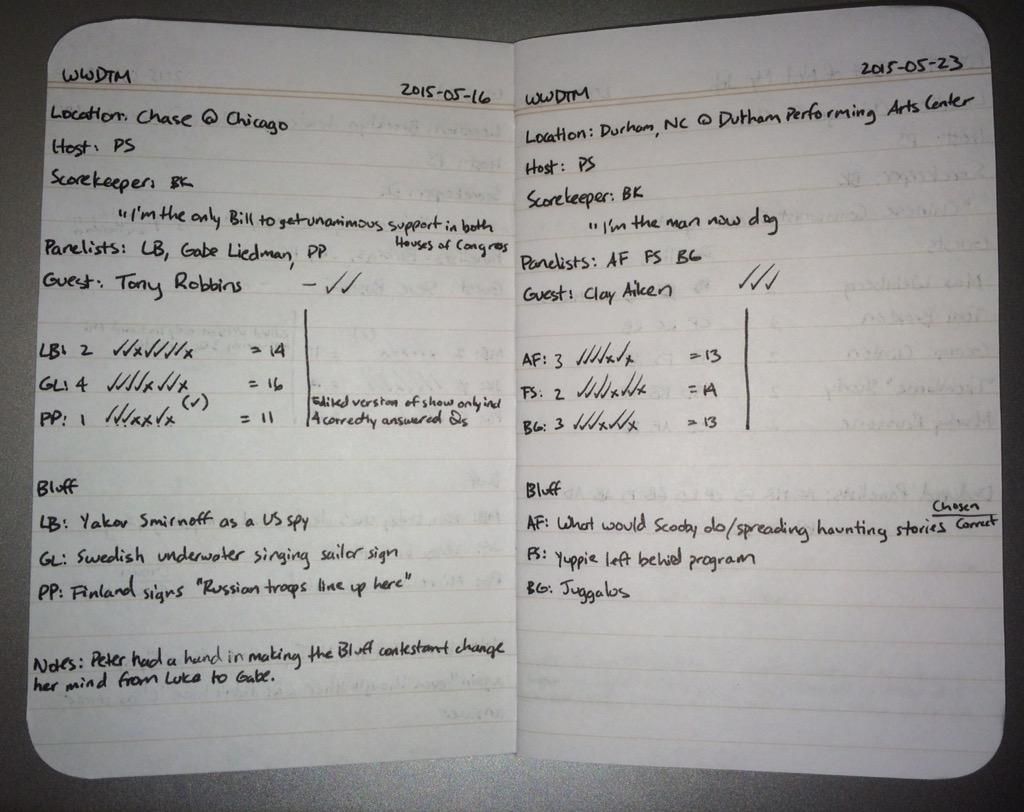 WWDTM
2015-05-16
Location: Chase @ Chicago
Host: PS
Scorekeeper: BK
"I'm the only Bill to get unanimous support in both
Houses of Congress
Panelists: LB, Gabe Liedman, PP
Guest: Tony Robbins – ✓✓
LB: 2 ✓✓x✓✓✓✓x = 14
GL: 4 ✓✓✓✓x✓✓x = 16
(✓)
PP: 1 ✓✓✓xx✓x = 11
Edited version of show only incl
4 correctly answered Qs
Bluff
LB: Yakov Smirnoff as a US spy
GL: Swedish underwater singing sailor sign
PP: Finland signs "Russian troops line up here"
Notes: Peter had a hand in making the Bluff contestant change
her mind from Luke to Gabe.
WWDTM
2015-05-23
Location: Durham, NC @ Durham Performing Arts Center
Host: PS
Scorekeeper: BK
"I'm the man now dog
Panelists: AF FS BG
Guest: Clay Aiken ✓✓✓
AF: 3 ✓✓✓✓x✓x = 13
FS: 2 ✓✓✓✓x✓✓x = 14
BG: 3 ✓✓✓x✓✓x = 13
Bluff
Chosen
AF: What would Scooby do/spreading haunting stories Correct
FS: Yuppie left behind program
BG: Juggalos